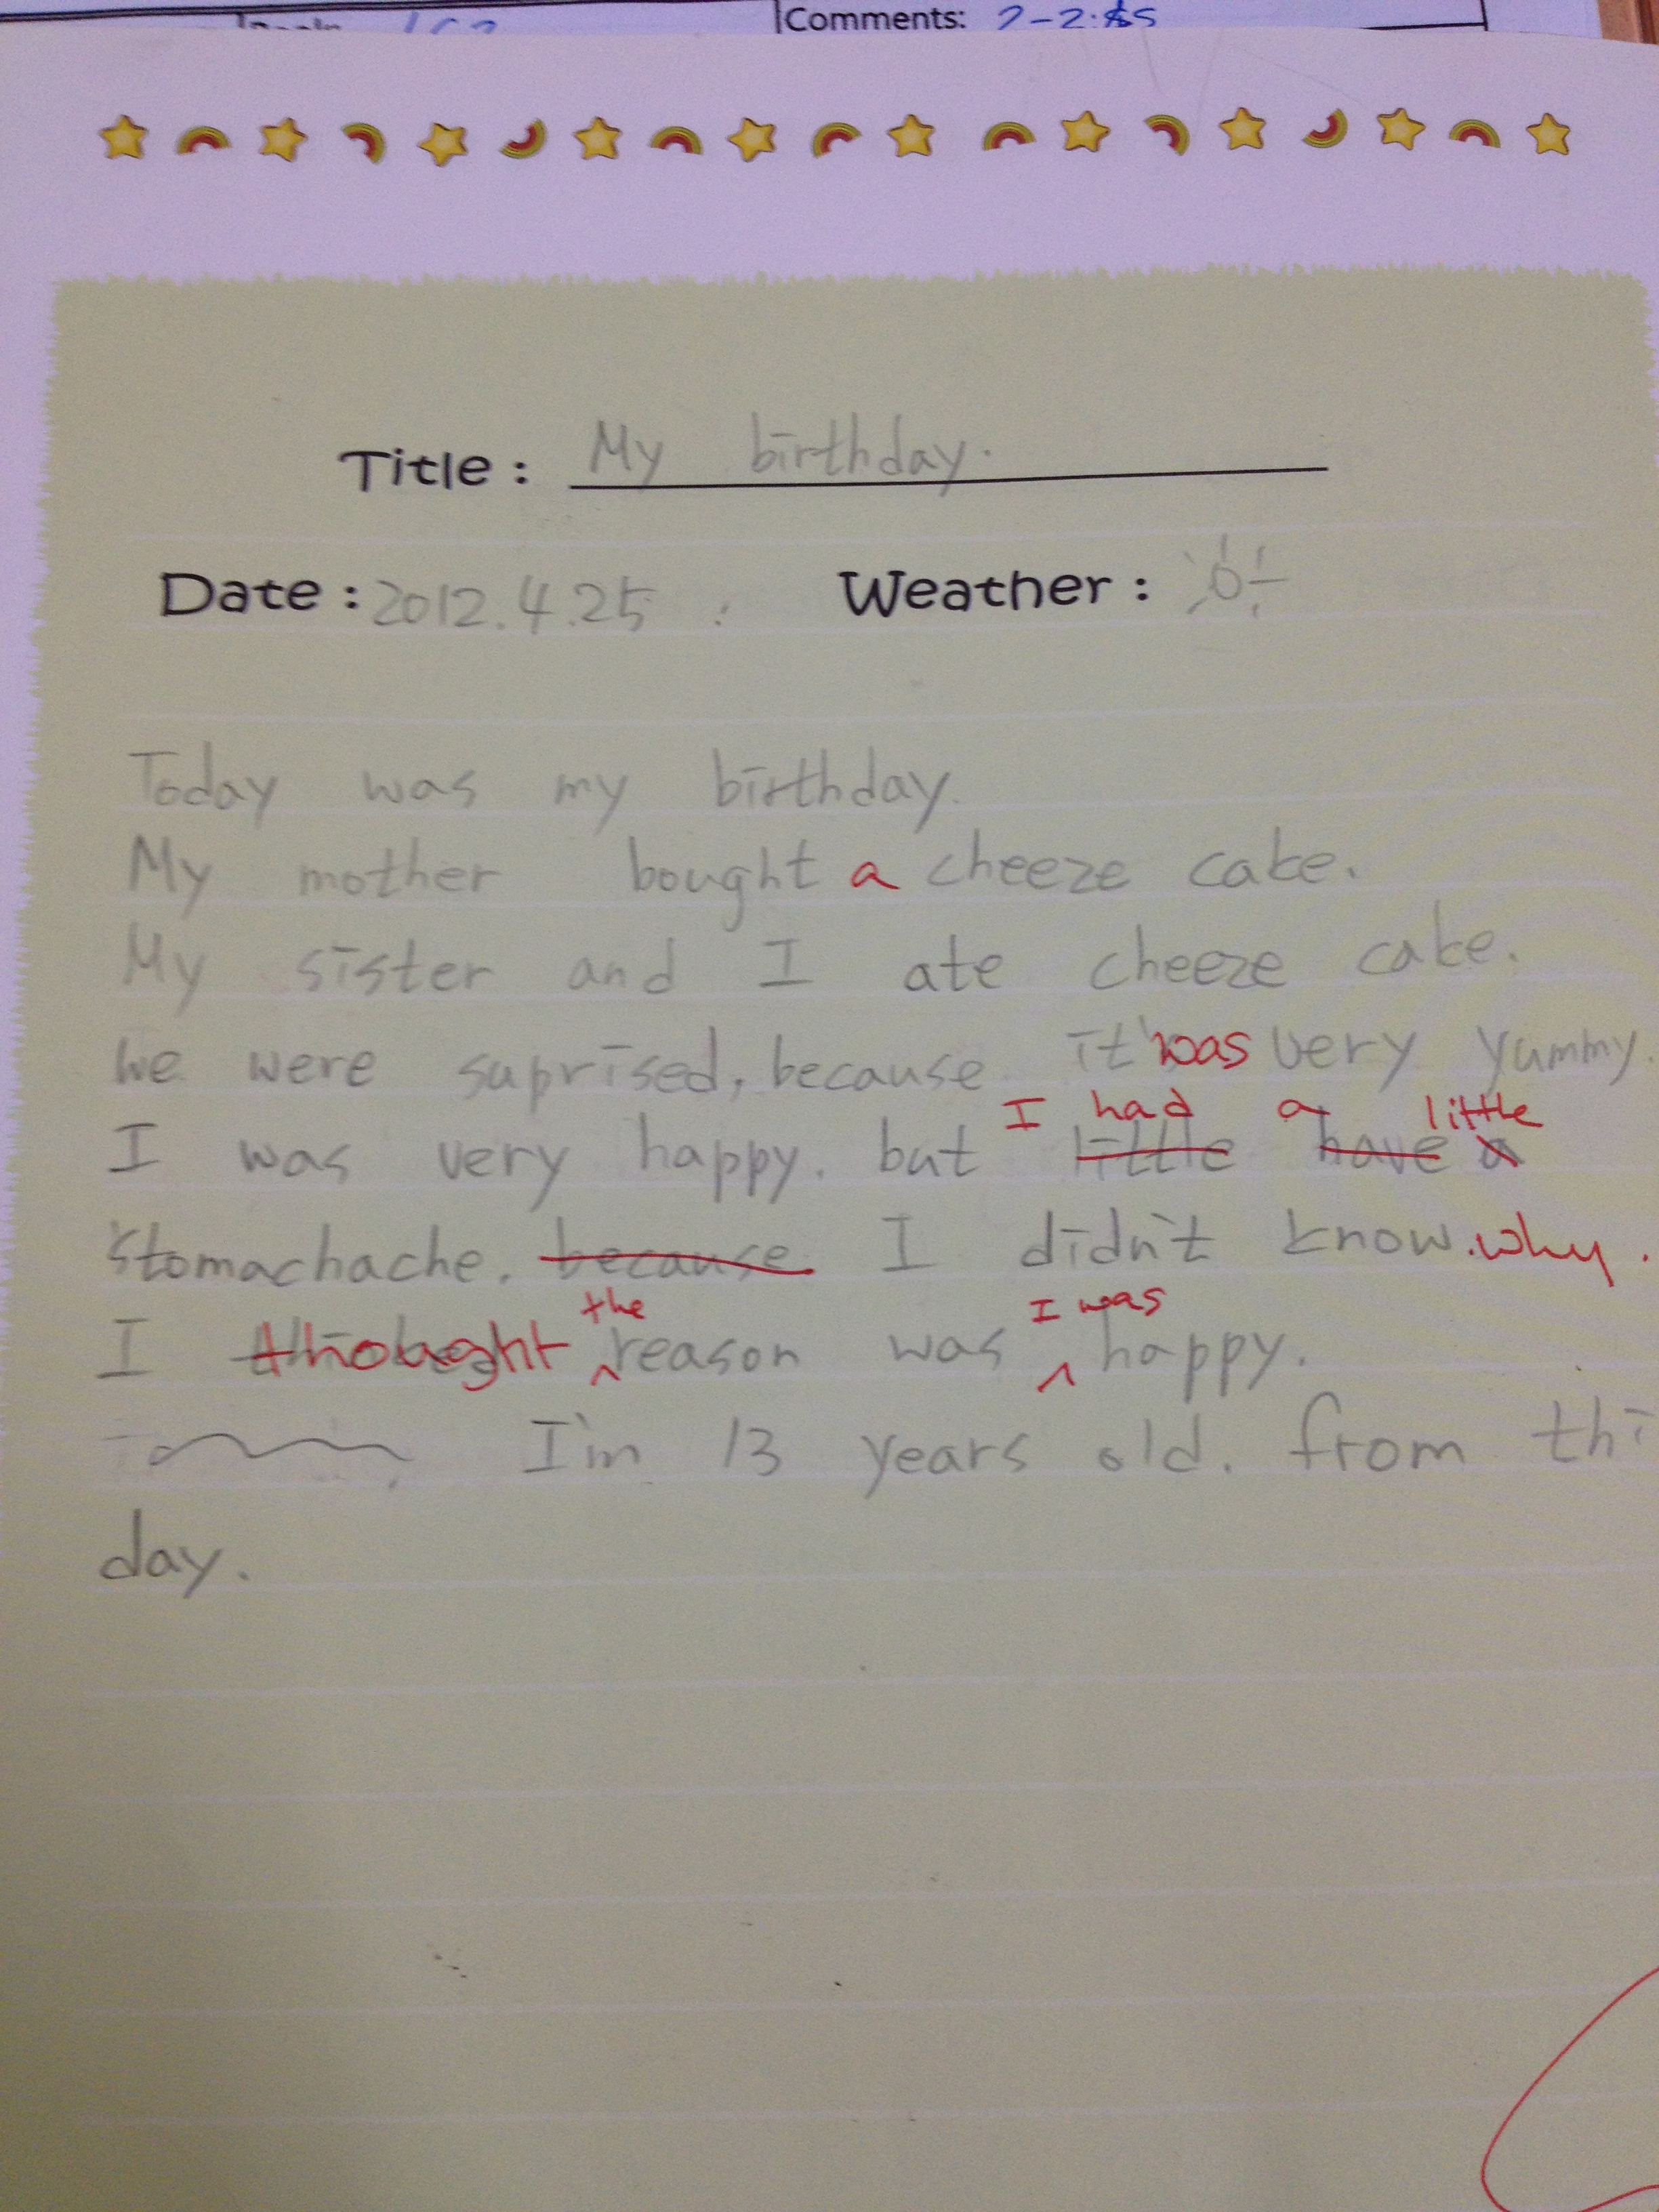 Comments: 2-2:
Title : My birthday.
Date : 2012.4.25 Weather :
Today was my birthday.
My mother bought a cheeze cake.
My sister and I ate cheeze cake.
We were suprised, because it was very yummy.
I had a little
I was very happy. but little have a
stomachache. because I didn't know. why.
the I was
I thought reason was happy.
I'm 13 years old. from thi
day.